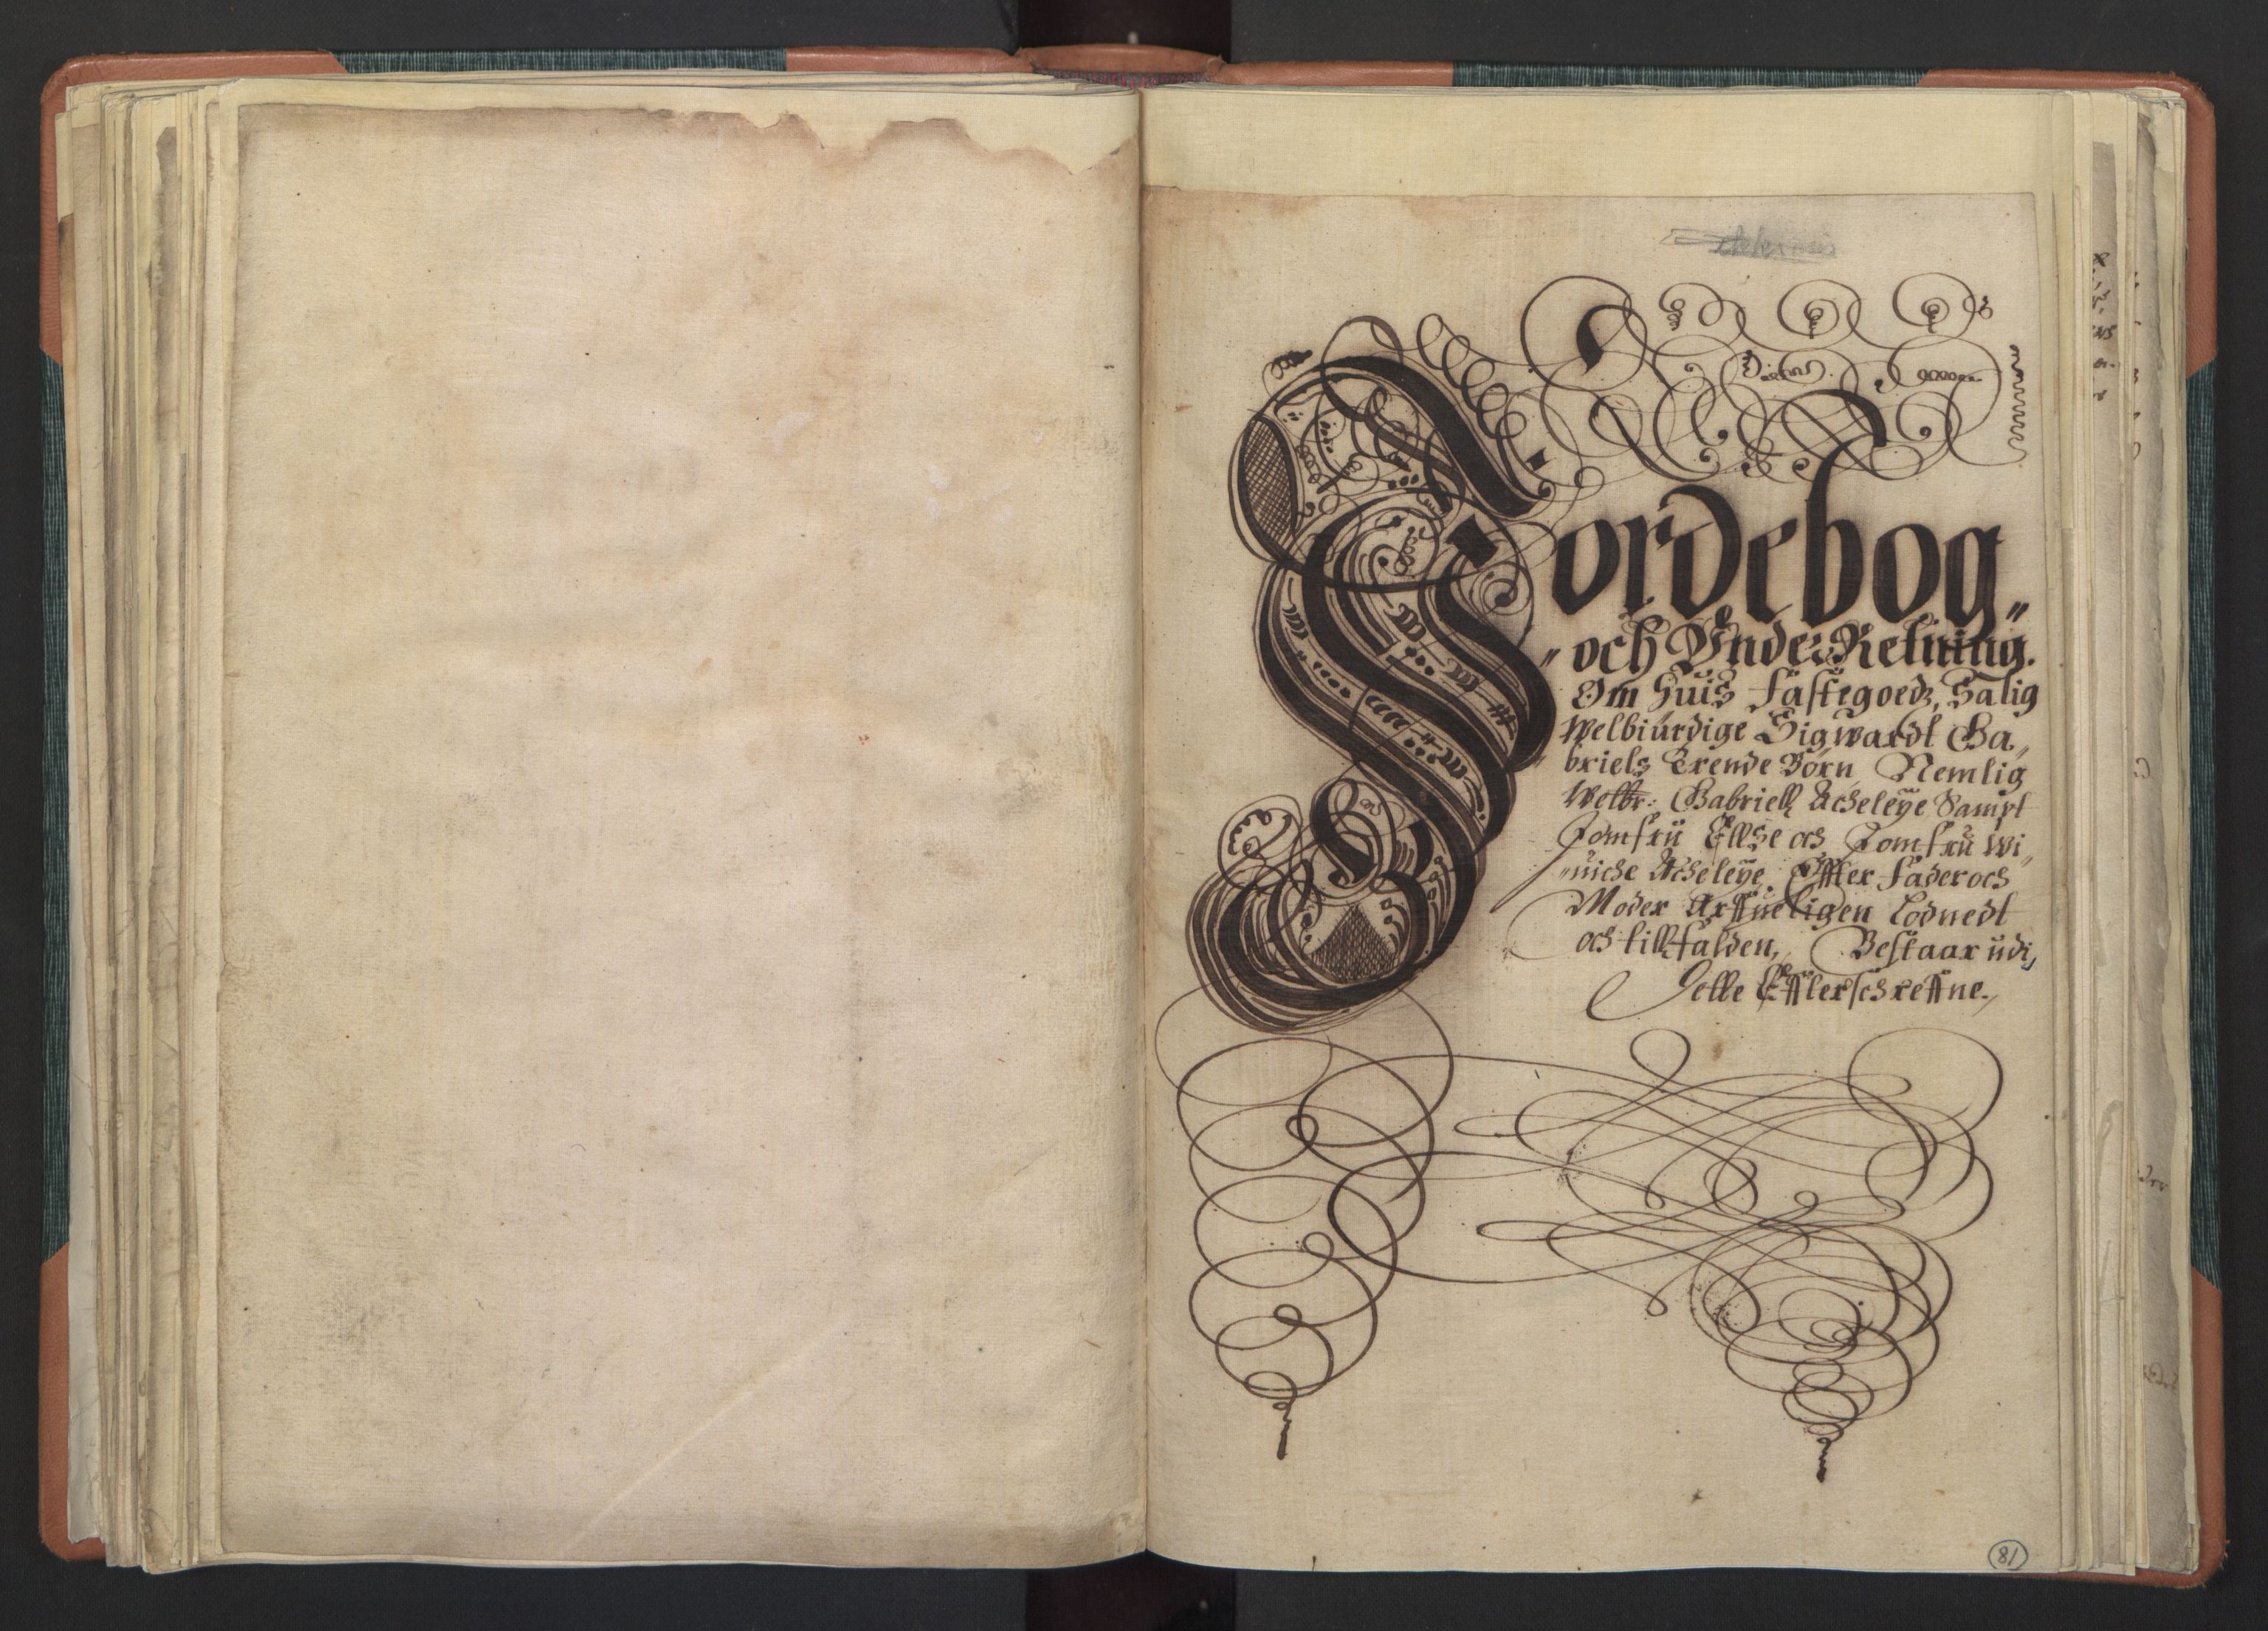 Jordebog„
„och Vnder Retning.
Om huis fastegoedz, Salig
Welbiurdige Sigwardt Ga„
briels Erende Börn Nemlig
Welbr: Gabriell Acheleÿe Sampt
Jomfrŭ Ellse och Jomfrŭ Wi„
„niche Acheleÿe. Effter fader och
Moder Arffŭeligen Lodnedt
och tillfalden, Bestaar ŭdi,
Dette Effterschreffne.
81